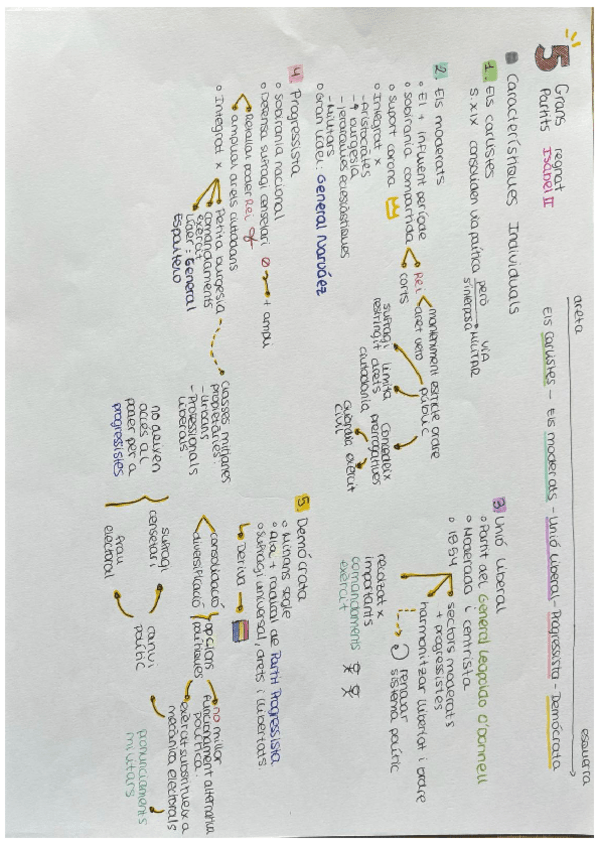 5 Grans Partits regnat Isabel II
dreta
esquerra
Els carlistes - Els moderats - Unió Liberal - Progressista - Demócrata
Característiques Individuals
1. Els carlistes
S. XIX consoliden via política però s'interposà via MILITAR
2. Els moderats
El + influent període
Sobirania compartida
Rei
corts
manteniment estricte ordre públic
dret veto
sufragi restringit
limita drets ciutadania
Concedeix prerrogatives
guardia civil
exèrcit
Suport corona
Integrat x
- Aristòcrates
- ↑ burgesia
- jerarquies eclesiàstiques
- Militars
Gran líder: General Narváez
3 Unió Liberal
Partit del General Leopoldo O'Donnell
Moderada i centrista
1854
sectors moderats + progressistes
harmonitzar llibertat i ordre
renovar sistema polític
recolzat x importants comandaments exèrcit
4 Progressista
Sobirania nacional
Defensa sufragi censatari
+ ampli
Retallar poder Rei
ampliar drets ciutadans
Integrat x
Petita burgesia
comandaments exèrcit
Líder: General Espartero
classes mitjanes propietàries:
- Urbans
- Professionals liberals
5. Demócrata
Mitjans segle
Ala + radical de Partit Progressista
Sufragi universal, drets i llibertats
Deriva
consolidació
diversificació
opcions polítiques
no millor funcionament alternativa política.
exèrcit substitueix a mecànica electorals
no deixen accés al poder per a progressistes
sufragi censatari
frau electoral
canvi polític
pronunciaments militars